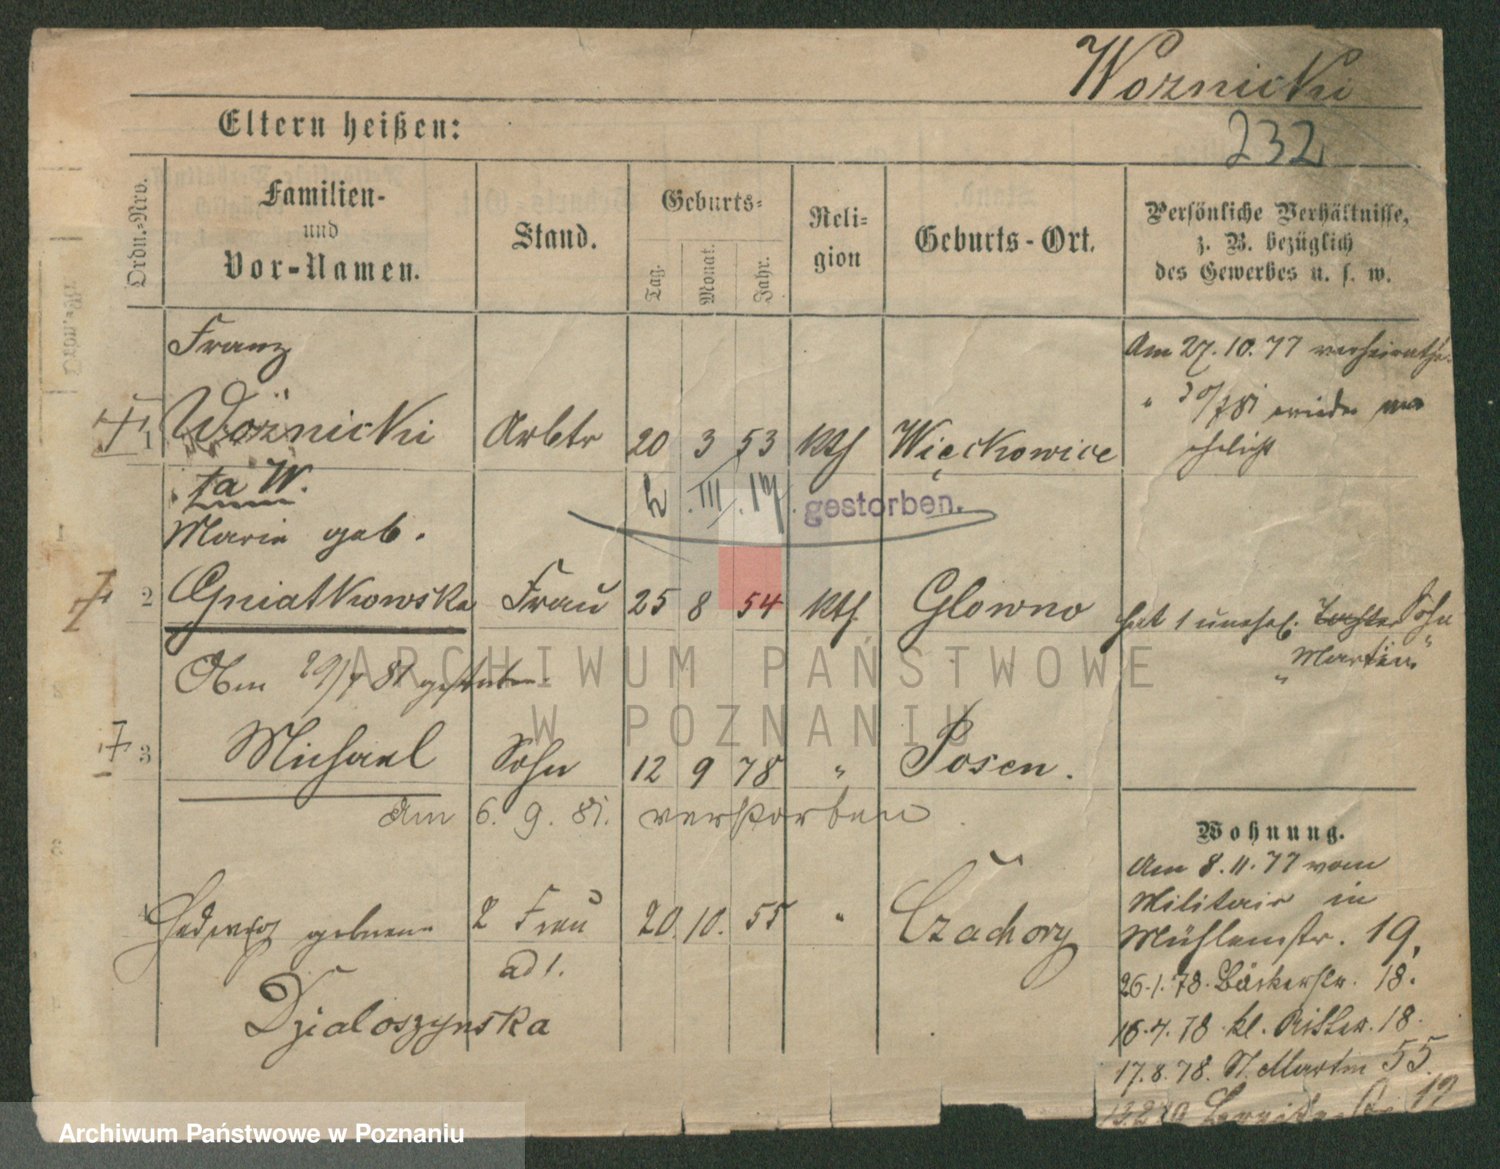 Woznicki
232
Eltern heißen:
Ordn.-Nro.
Familien-
und
Vor-Namen.
Stand.
Geburts-
Tag.
Monat.
Jahr.
Reli-
gion
Geburts-Ort.
Persönliche Verhältnisse,
z. B. bezüglich
des Gewerbes u. s. w.
Franz
1 Woznicki Arbtr 20 3 53 Kth Więckowice
Am 27.10.77
" 30/7 81 wieder
ehelicht
ta W.
2. III. 17. gestorben.
Marie geb.
2 Gniatkowska Frau 25 8 54 Kth. Glowno
hat 1 unehel. Tochter Sohn
"Martin"
Am 29/4 81 gestorben.
3 Michael Sohn 12 9 78 " Posen.
Am 6. 9. 81. verstorben
Wohnung.
Am 8.11.77 vom
Militair in
Mühlenstr. 19.
26.1.78. Bäckerstr. 18.
18.4.78 kl. Ritter. 18.
17.8.78. St. Martin 55
12
4 Hedwig geborene 2 Frau 20. 10. 55 " Czachory
ad 1.
Dzialoszynska
ARCHIWUM PAŃSTWOWE
W POZNANIU
Archiwum Państwowe w Poznaniu